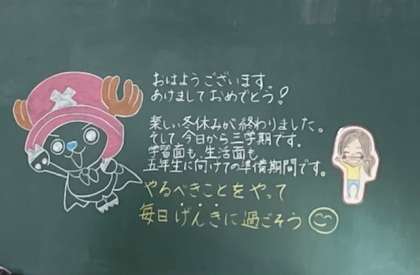 おはようございます
あけましておめでとう!
楽しい冬休みが終わりました。
そして今日から三学期です。
学習面も、生活面も
五年生に向けての準備期間です。
やるべきことをやって
毎日げんきに過ごそう